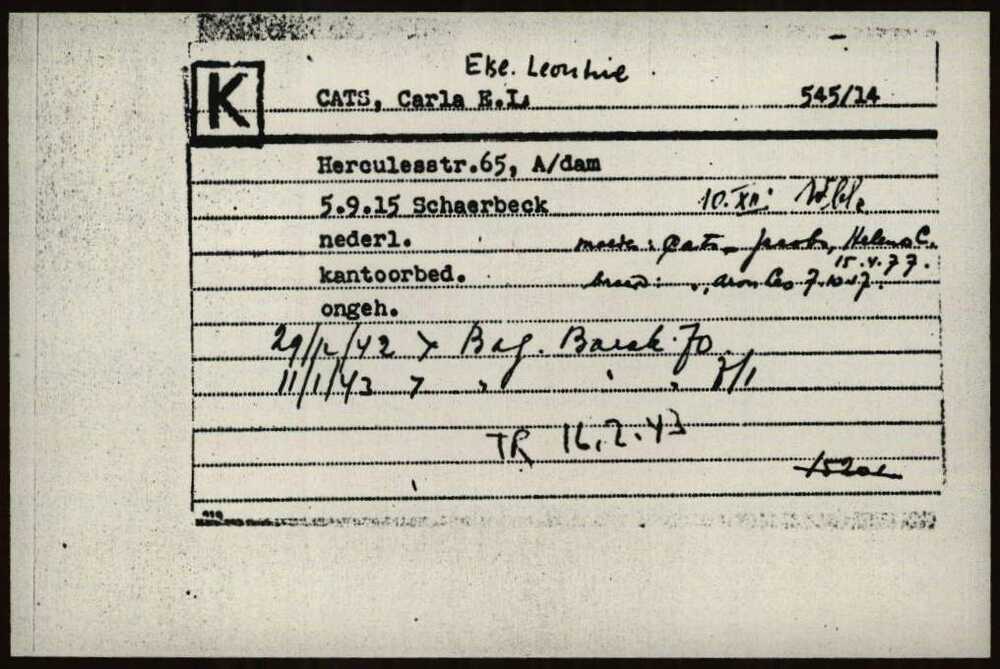 Else. Leontine
K
CATS, Carla E.L. 545/14
Herculesstr.65, A/dam
5.9.15 Schaerbeck 10.XII.
nederl. moeder: Cats-Jacobs, Helena C.
15.4.77.
kantoorbed. broer: Aron
ongeh.
29/12/42 > Bag. Barak 70
11/1/43 > " " " 7/1
TR 16.2.43